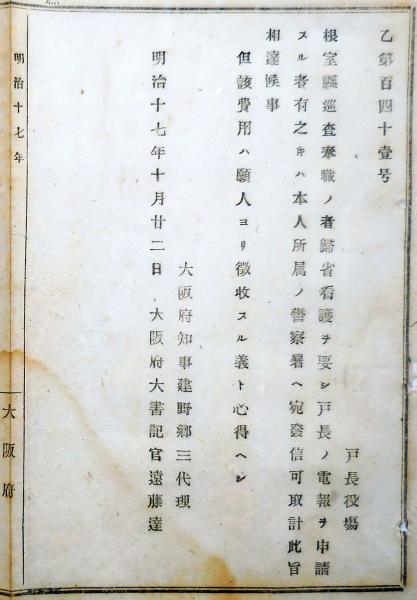 乙第百四十壹号
戸長役場
根室縣巡査奉職ノ者歸省看護ヲ要シ戸長ノ電報ヲ申請
スル者有之キハ本人所属ノ警察署ヘ宛發信可取計此旨
相達候事
但該費用ハ願人ヨリ徴收スル義ト心得ヘシ
大阪府知事建野郷三代理
明治十七年十月廿二日 大阪府大書記官遠藤達
明治十七年
大阪府